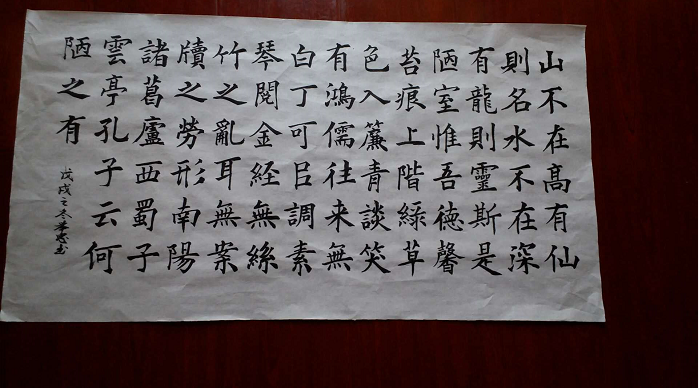 山不在髙有仙
則名水不在深
有龍則靈斯是
陋室惟吾德馨
苔痕上階綠草
色入簾青談笑
有鴻儒往来無
白丁可㠯調素
琴閱金経無絲
竹之亂耳無案
牘之勞形南陽
諸葛廬西蜀子
雲亭孔子云何
陋之有
戊戌之冬